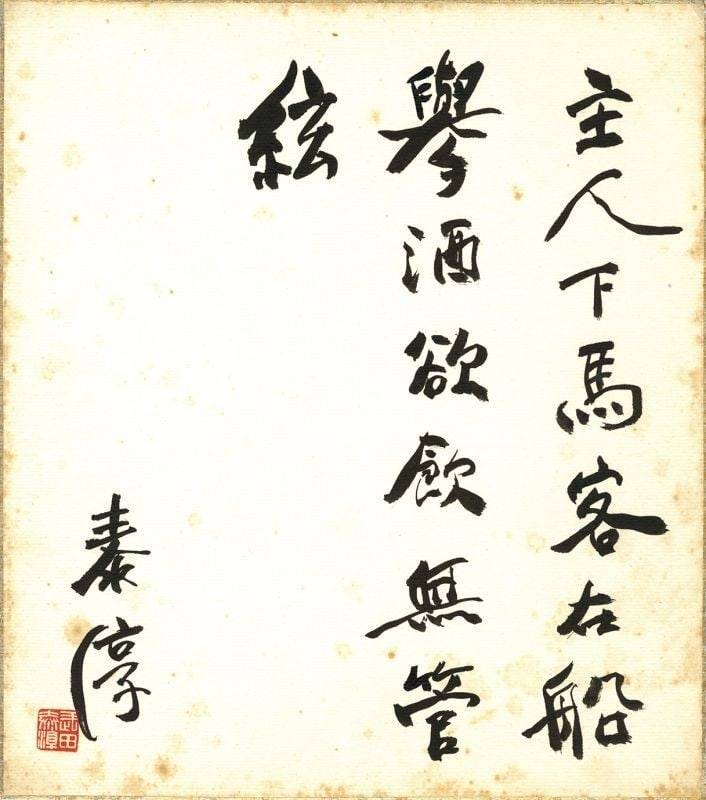 主人下馬客在船
舉酒欲飲無管
絃
泰淳
武田
泰淳